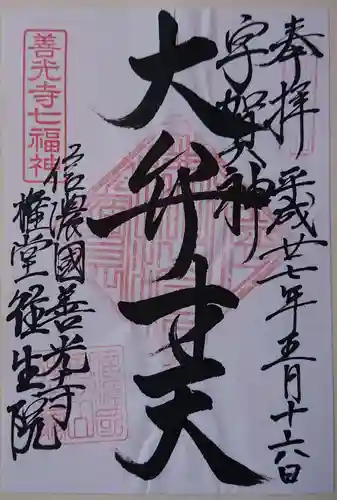 奉拝 平成廿七年五月十六日
宇賀神
大弁才天
善光寺七福神
信濃國善光寺
権堂 往生院